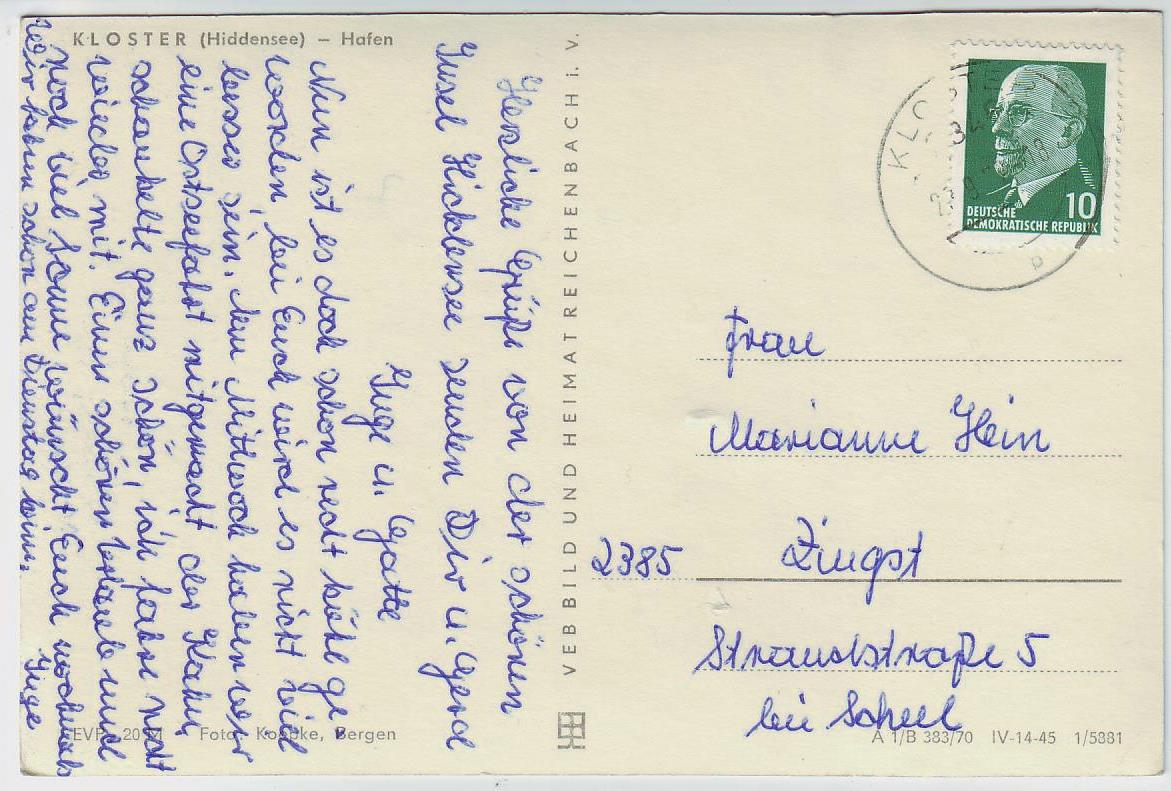 KLOSTER (Hiddensee) – Hafen
Herzliche Grüße von der schönen
Insel Hiddensee senden Dir u. Gerd
Inge u. Gatte
Nun ist es doch schon recht kühl ge
worden bei Euch wird es nicht viel
besser sein. Am Mittwoch haben wir
eine Ostseefahrt mitgemacht der Kahn
schaukelte ganz schön, ich fahre nicht
wieder mit. Einen schönen Urlaub und
noch viel Sonne wünscht Euch nochmals
Inge
Wir fahren schon am Dienstag heim.
EVP –,20 M Foto: Koepke, Bergen
VEB BILD UND HEIMAT REICHENBACH i. V.
KLOSTER
DEUTSCHE
DEMOKRATISCHE REPUBLIK
10
Frau
Marianne Hein
2385 Zingst
Strandstraße 5
bei Scheel
A 1/B 383/70 IV-14-45 1/5881